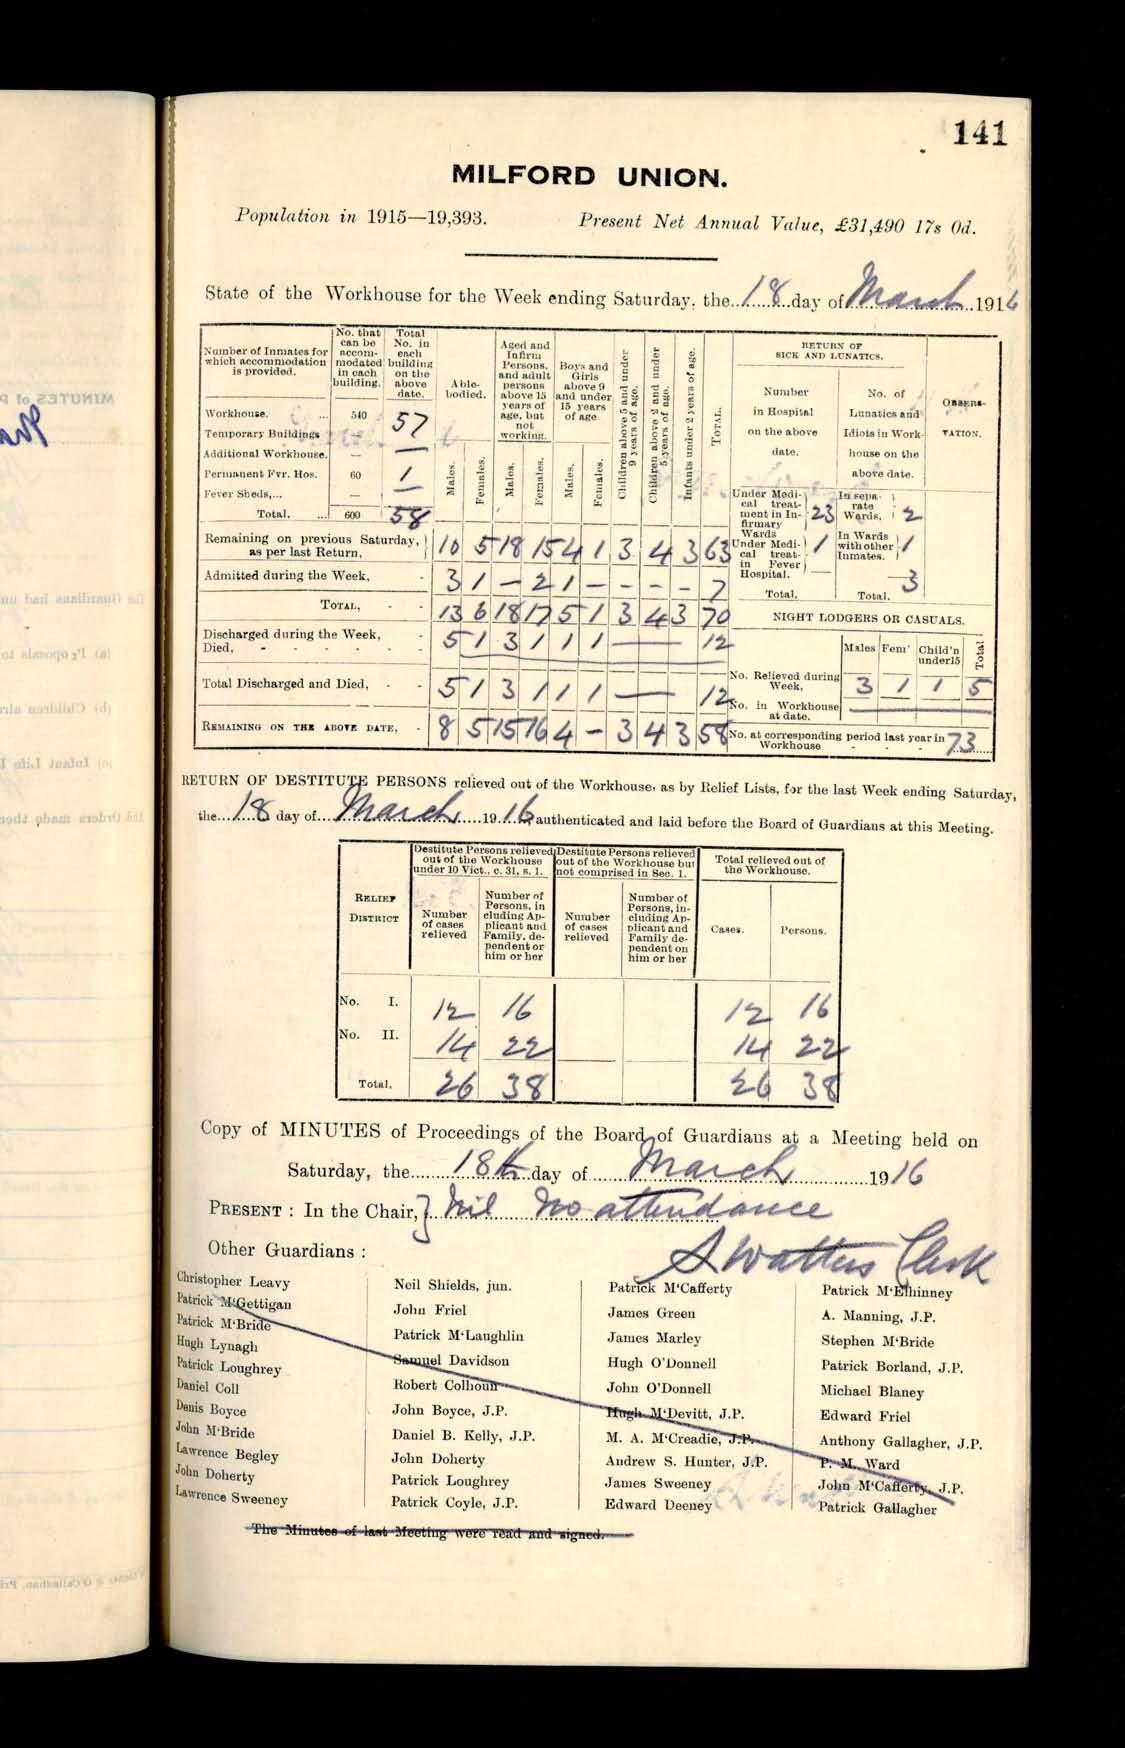 141
MILFORD UNION.
Population in 1915—19,393. Present Net Annual Value, £31,490 17s 0d.
State of the Workhouse for the Week ending Saturday, the 18 day of March 1916
Number of Inmates for which accommodation is provided. No. that can be accom-modated in each building. Total No. in each building on the above date.
Workhouse. ... 540 57
Temporary Buildings — —
Additional Workhouse. — —
Permanent Fvr. Hos. 60 1
Fever Sheds,... — —
Total. ... 600 58
Able-bodied.
Aged and Infirm Persons, and adult persons above 15 years of age, but not working.
Boys and Girls above 9 and under 15 years of age
Children above 5 and under 9 years of age.
Children above 2 and under 5 years of age.
Infants under 2 years of age.
TOTAL.
Males. Females. Males. Females. Males. Females.
Remaining on previous Saturday, as per last Return, 10 5 18 15 4 1 3 4 3 63
Admitted during the Week, - 3 1 — 2 1 – – – – 7
TOTAL, - - 13 6 18 17 5 1 3 4 3 70
Discharged during the Week, - 5 1 3 1 1 1 — 12
Died, - - - - - -
Total Discharged and Died, - - 5 1 3 1 1 1 — 12
REMAINING ON THE ABOVE DATE, - 8 5 15 16 4 – 3 4 3 58
RETURN OF SICK AND LUNATICS.
Number in Hospital on the above date.
No. of Lunatics and Idiots in Work-house on the above date.
OBSERVATION.
Under Medi-cal treat-ment in In-firmary Wards 23
In sepa-rate Wards, 2
Under Medi-cal treat-in Fever Hospital. 1
In Wards with other Inmates. 1
Total. Total. 3
NIGHT LODGERS OR CASUALS.
Males Fem' Child'n under 15 Total
No. Relieved during Week, 3 1 1 5
No. in Workhouse at date.
No. at corresponding period last year in Workhouse - - - 73
RETURN OF DESTITUTE PERSONS relieved out of the Workhouse, as by Relief Lists, for the last Week ending Saturday,
the 18 day of March 1916 authenticated and laid before the Board of Guardians at this Meeting.
RELIEF DISTRICT
Destitute Persons relieved out of the Workhouse under 10 Vict., c. 31, s. 1.
Destitute Persons relieved out of the Workhouse but not comprised in Sec. 1.
Total relieved out of the Workhouse.
Number of cases relieved
Number of Persons, in cluding Ap-plicant and Family, de-pendent or him or her
Number of cases relieved
Number of Persons, in-cluding Ap-plicant and Family de-pendent on him or her
Cases. Persons.
No. I. 12 16 12 16
No. II. 14 22 14 22
Total, 26 38 26 38
Copy of MINUTES of Proceedings of the Board of Guardians at a Meeting held on
Saturday, the 18th day of March 1916
PRESENT : In the Chair,} Nil No attendance
S Watters Clerk
Other Guardians :
Christopher Leavy
Patrick M'Gettigan
Patrick M'Bride
Hugh Lynagh
Patrick Loughrey
Daniel Coll
Denis Boyce
John M'Bride
Lawrence Begley
John Doherty
Lawrence Sweeney
Neil Shields, jun.
John Friel
Patrick M'Laughlin
Samuel Davidson
Robert Colhoun
John Boyce, J.P.
Daniel B. Kelly, J.P.
John Doherty
Patrick Loughrey
Patrick Coyle, J.P.
Patrick M'Cafferty
James Green
James Marley
Hugh O'Donnell
John O'Donnell
Hugh M'Devitt, J.P.
M. A. M'Creadie, J.P.
Andrew S. Hunter, J.P.
James Sweeney
Edward Deeney
Patrick M'Elhinney
A. Manning, J.P.
Stephen M'Bride
Patrick Borland, J.P.
Michael Blaney
Edward Friel
Anthony Gallagher, J.P.
P. M. Ward
John M'Cafferty, J.P.
Patrick Gallagher
The Minutes of last Meeting were read and signed.